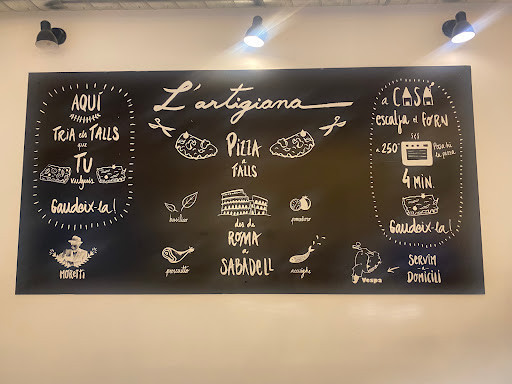 L'artigiana
AQUÍ
TRIA els TALLS
que
TU
vulguis
Gaudeix-la!
MORETTI
PIZZA
a
TALLS
basilico
pomodoro
des de
ROMA
a
SABADELL
prosciutto
acciughe
a CASA
escalfa el FORN
a 250º
Posa hi
la pizza
4 MIN.
Gaudeix-la!
Vespa
SERVIM
a
DOMICILI